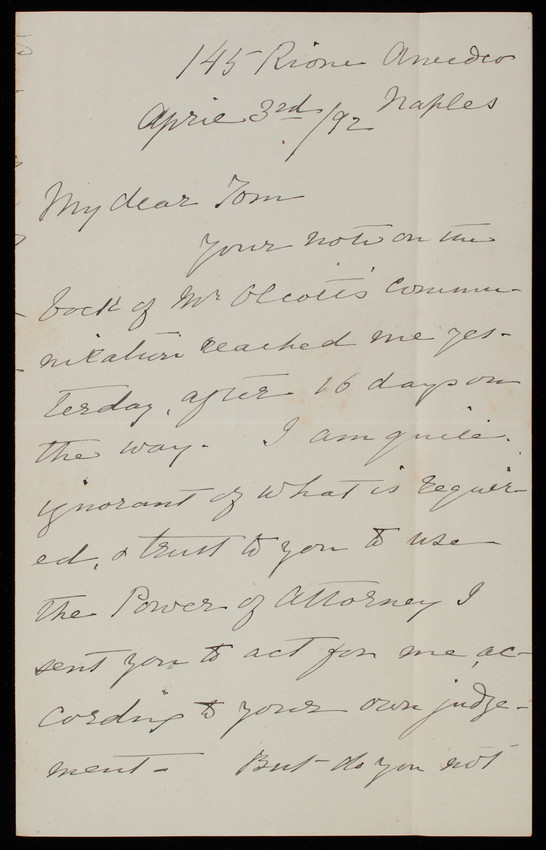 145 Rione Amedeo
Naples
April 3rd/92
My dear Tom
Your note on the
back of Mr Olcott's commu-
nication reached me yes-
terday, after 16 days on
the way. I am quite
ignorant of what is requir-
ed, & trust to you to use
the Power of Attorney I
sent you to act for me, ac-
cording to your own judge-
ment - But do you not